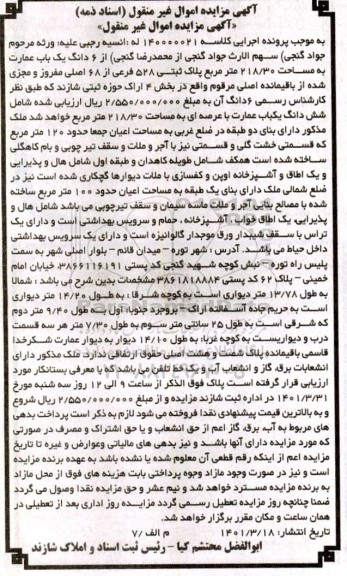 آگهی مزایده اموال غیر منقول (اسناد ذمه)
«آگهی مزایده اموال غیر منقول»
به موجب پرونده اجرایی کلاسه ۱۴۰۰۰۰۰۲۱ له :انسیه رجبی علیه: ورثه مرحوم
جواد گنجی) سهم الارث جواد گنجی از محمدرضا گنجی) از ۶ دانگ یک باب عمارت
به مساحت ۲۱۸/۳۰ متر مربع پلاک ثبتی ۵۲۸ فرعی از ۶۸ اصلی مفروز و مجزی
شده از باقیمانده اصلی مرقوم واقع در بخش ۴ اراک حوزه ثبتی شازند که طبق نظر
کارشناس رسمی ۶دانگ آن به مبلغ ۲/۵۵۰/۰۰۰/۰۰۰ ریال ارزیابی شده شامل
شش دانگ یکباب عمارت با عرصه ای به مساحت ۲۱۸/۳۰ متر مربع خواهد شد ملک
مذکور دارای بنای دو طبقه در ضلع غربی به مساحت اعیان جمعا حدود ۱۲۰ متر مربع
که قسمتی خشت گلی و قسمتی نیز با آجر و ملات و سقف تیر چوبی و بام کاهگلی
ساخته شده است همکف شامل طویله کاهدان و طبقه اول شامل هال و پذیرایی
و یک اطاق و آشپزخانه اوپن و کفسازی با ملات دیوارها گچکاری شده است نیز در
ضلع شمالی ملک دارای بنای یک طبقه به مساحت اعیان حدود ۱۰۰ متر مربع ساخته
شده با مصالح بنایی آجر و ملات ماسه سیمان و سقف تیرچوبی می باشد شامل هال و
پذیرایی، یک اطاق خواب، آشپزخانه ، حمام و سرویس بهداشتی است و دارای یک
تراس با سقف شیبدار ورق موجدار گالوانیزه است و دارای یک سرویس بهداشتی
داخل حیاط می باشد. آدرس : شهر توره - میدان قائم - بلوار اصلی شهر به سمت
پلیس راه توره - نبش کوچه شهید گنجی کد پستی ۳۸۶۶۱۱۶۱۹۱، خیابان امام
خمینی- پلاک ۶۲ کد پستی ۳۸۶۱۸۱۸۸۸۴ مشخصات بدین شرح می باشد : شمالا
به طول ۱۳/۷۸ متر دیواری است به کوچه شرقا : به طول ۱۴/۲۰ متر دیواری
است به حریم جاده آسفالته اراک - بروجرد جنوبا: اول به طول ۹/۴۰ متر دوم
که شرقی است به طول ۲۵ سانتی متر سوم به طول ۷/۳۰ متر هر سه قسمت
درب و دیواریست به کوچه غربا: به طول ۱۴/۱۰ دیوار به دیوار عمارت شکرخدا
قاسمی باقیمانده پلاک شصت و هشت اصلی حقوق ارتفاقی ندارد. ملک مذکور دارای
انشعابات برق، گاز و انشعاب آب و یک خط تلفن می باشد که با معرفی بستانکار مورد
ارزیابی قرار گرفته است پلاک فوق الذکر از ساعت ۹ الی ۱۲ روز سه شنبه مورخ
۱۴۰۱/۳/۳۱ در اداره ثبت شازند مزایده و از مبلغ ۲/۵۵۰/۰۰۰/۰۰۰ ریال شروع
و به بالاترین قیمت پیشنهادی نقدا فروخته می شود لازم به ذکر است پرداخت بدهی
های مربوط به آب، برق، گاز اعم از حق انشعاب و یا حق اشتراک و مصرف در صورتی
که مورد مزایده دارای آنها باشد و نیز بدهی های مالیاتی وعوارض و غیره تا تاریخ
مزایده اعم از اینکه رقم قطعی آن معلوم شده یا نشده باشد به عهده برنده مزایده
است و نیز در صورت وجود مازاد وجوه پرداختی بابت هزینه های فوق از محل مازاد
به برنده مزایده مسترد خواهد شد و نیم عشر و حق مزایده نقدا وصول می گردد
ضمنا چنانچه روز مزایده تعطیل رسمی گردد مزایده روز اداری بعد از تعطیلی در
همان ساعت و مکان مقرر برگزار خواهد شد.
تاریخ انتشار: ۱۴۰۱/۳/۱۸ م الف /۷
ابوالفضل محتشم کیا - رئیس ثبت اسناد و املاک شازند